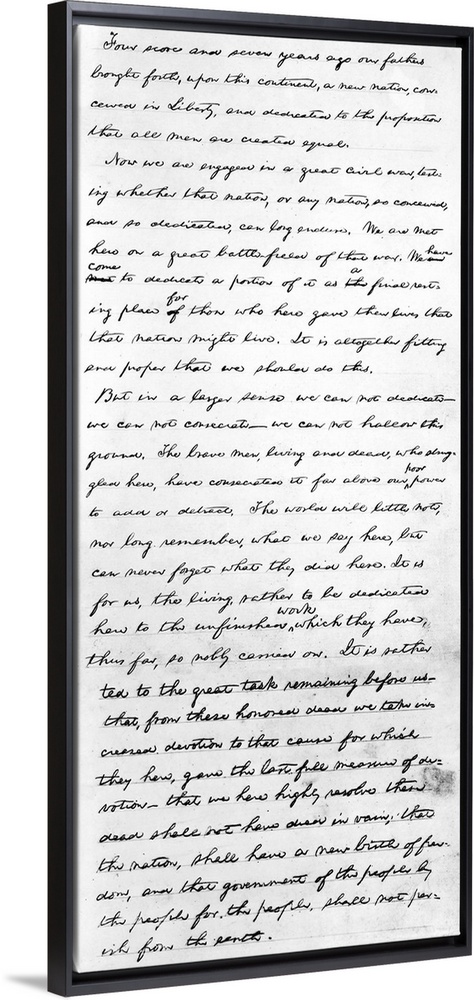 Four score and seven years ago our fathers
brought forth, upon this continent, a new nation, con-
ceived in Liberty, and dedicated to the proposition
that all men are created equal.
Now we are engaged in a great civil war, test-
ing whether that nation, or any nation, so conceived,
and so dedicated, can long endure. We are met
here on a great battle-field of that war. We have
come to dedicate a portion of it as a final rest-
ing place for those who here gave their lives that
that nation might live. It is altogether fitting
and proper that we should do this.
But in a larger sense we can not dedicate—
we can not consecrate— we can not hallow this
ground. The brave men, living and dead, who strug-
gled here, have consecrated it far above our poor power
to add or detract. The world will little note,
nor long remember, what we say here, but
can never forget what they did here. It is
for us, the living, rather to be dedicated
here to the unfinished work which they have,
thus far, so nobly carried on. It is rather
ted to the great task remaining before us—
that, from these honored dead we take in-
creased devotion to that cause for which
they here, gave the last full measure of de-
votion— that we here highly resolve these
dead shall not have died in vain; that
the nation, shall have a new birth of free-
dom, and that government of the people by
the people for the people, shall not per-
ish from the earth.